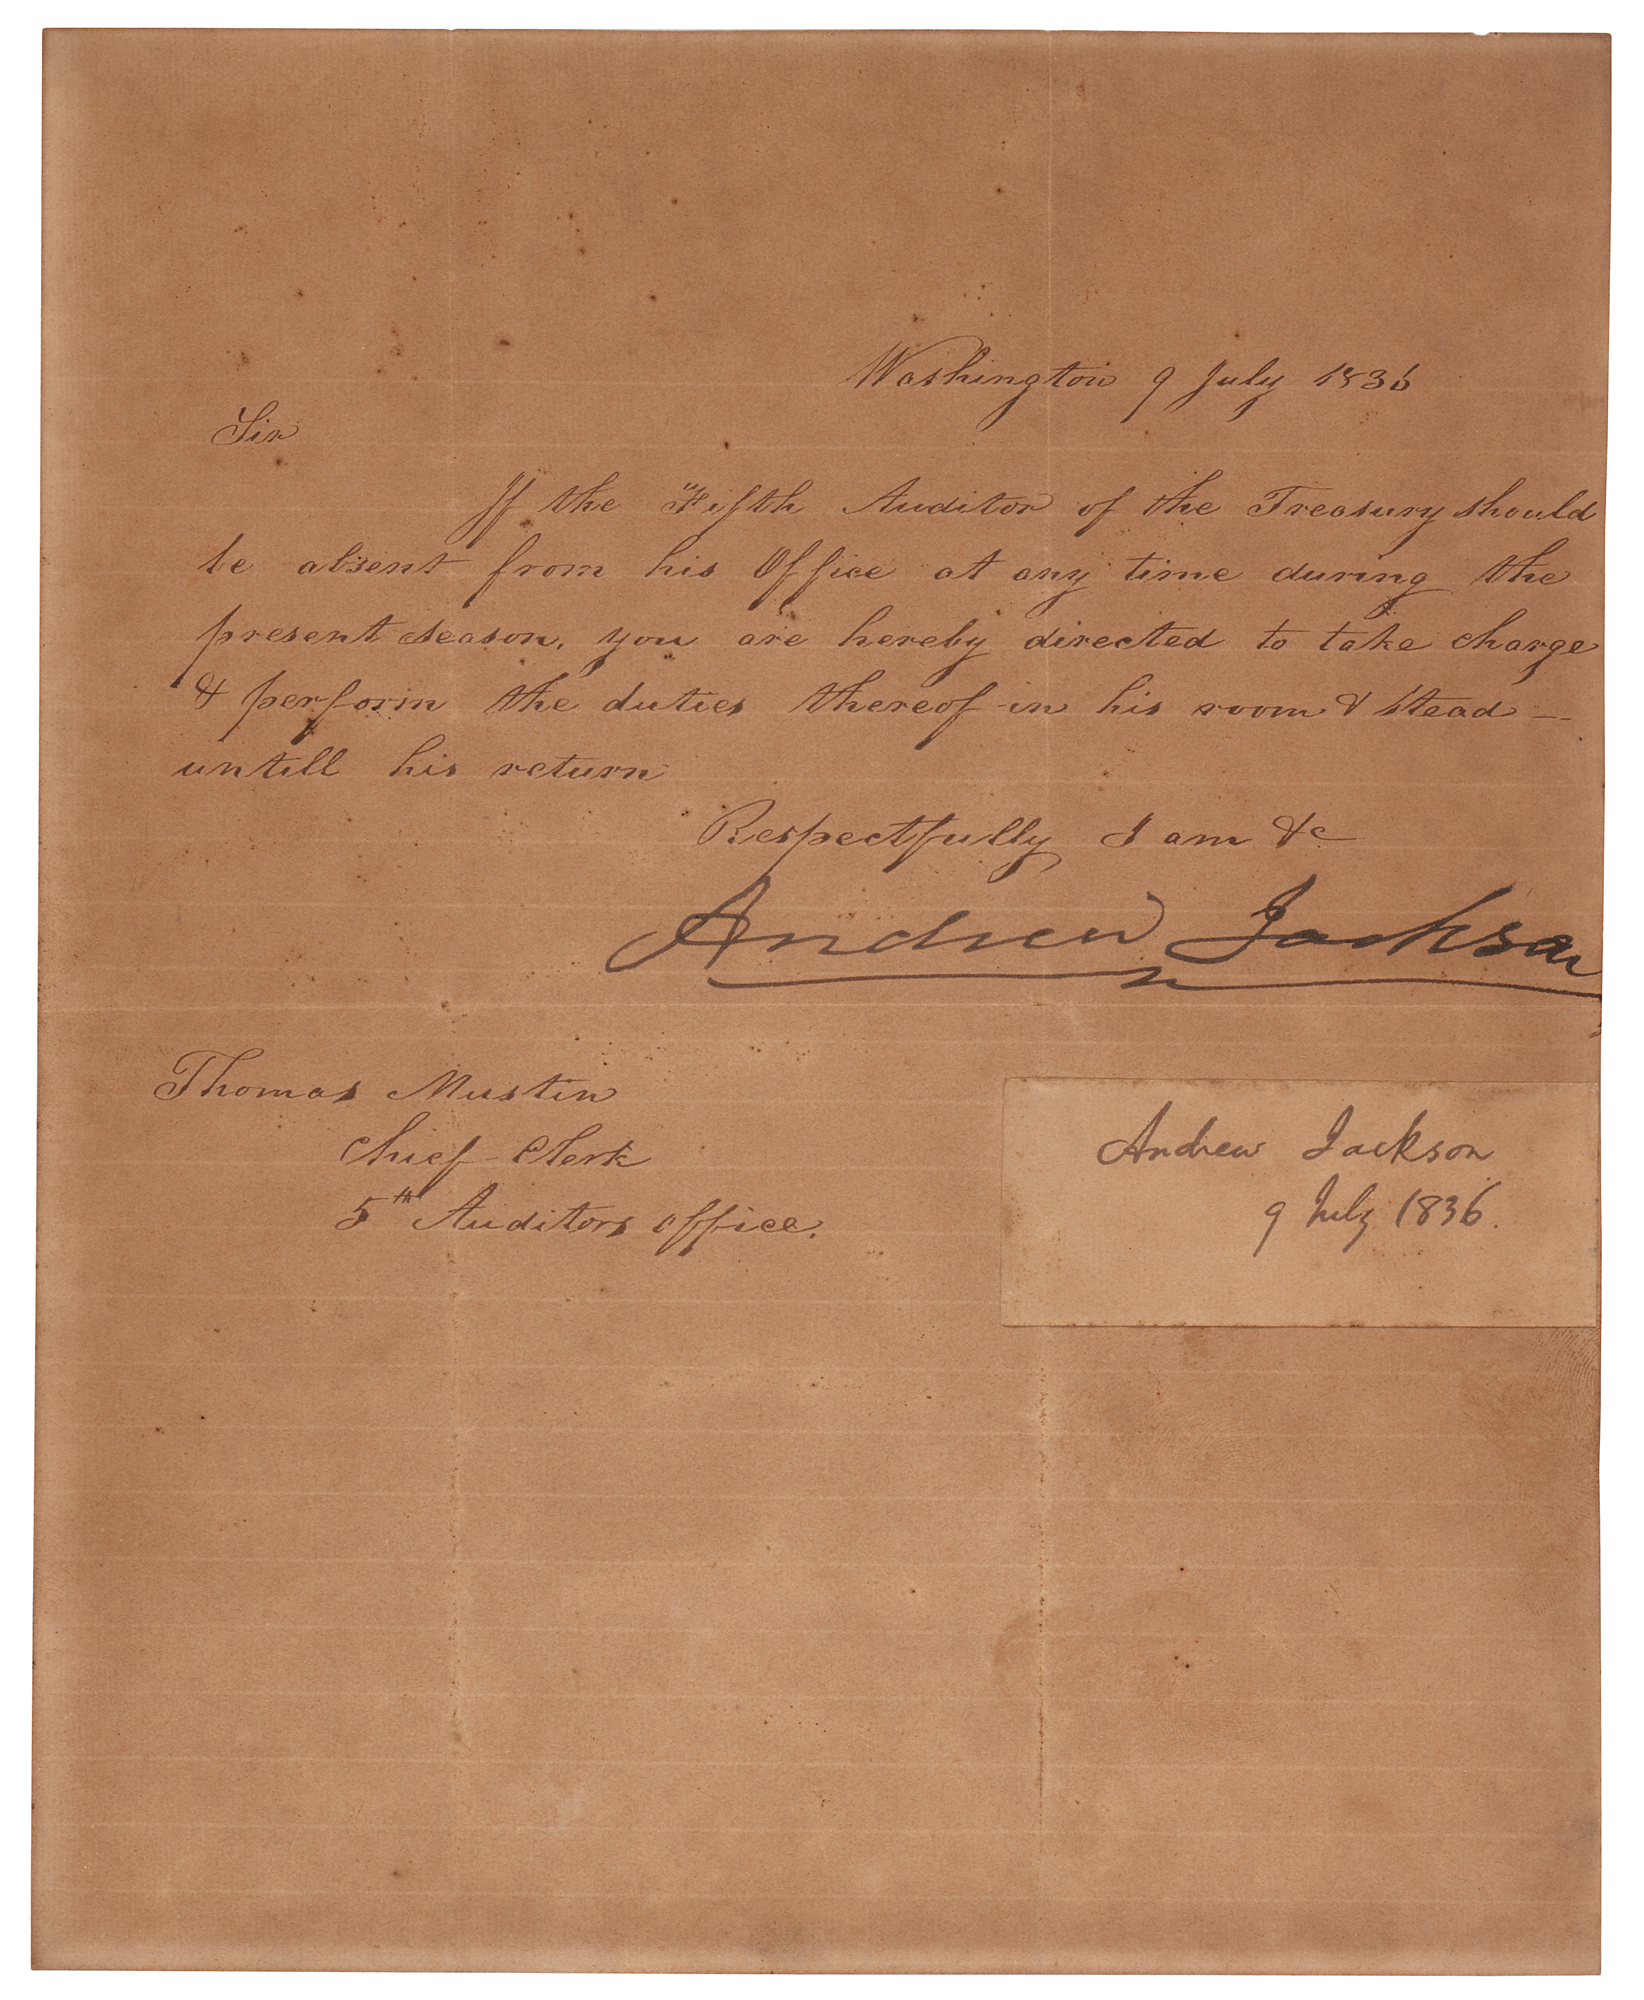 Washington 9 July 1836
Sir
If the Fifth Auditor of the Treasury should
be absent from his Office at any time during the
present season, you are hereby directed to take charge
& perform the duties thereof in his room & stead —
untill his return
Respectfully I am &c
Andrew Jackson
Thomas Mustin
Chief Clerk
5th Auditors office.
Andrew Jackson
9 July 1836.